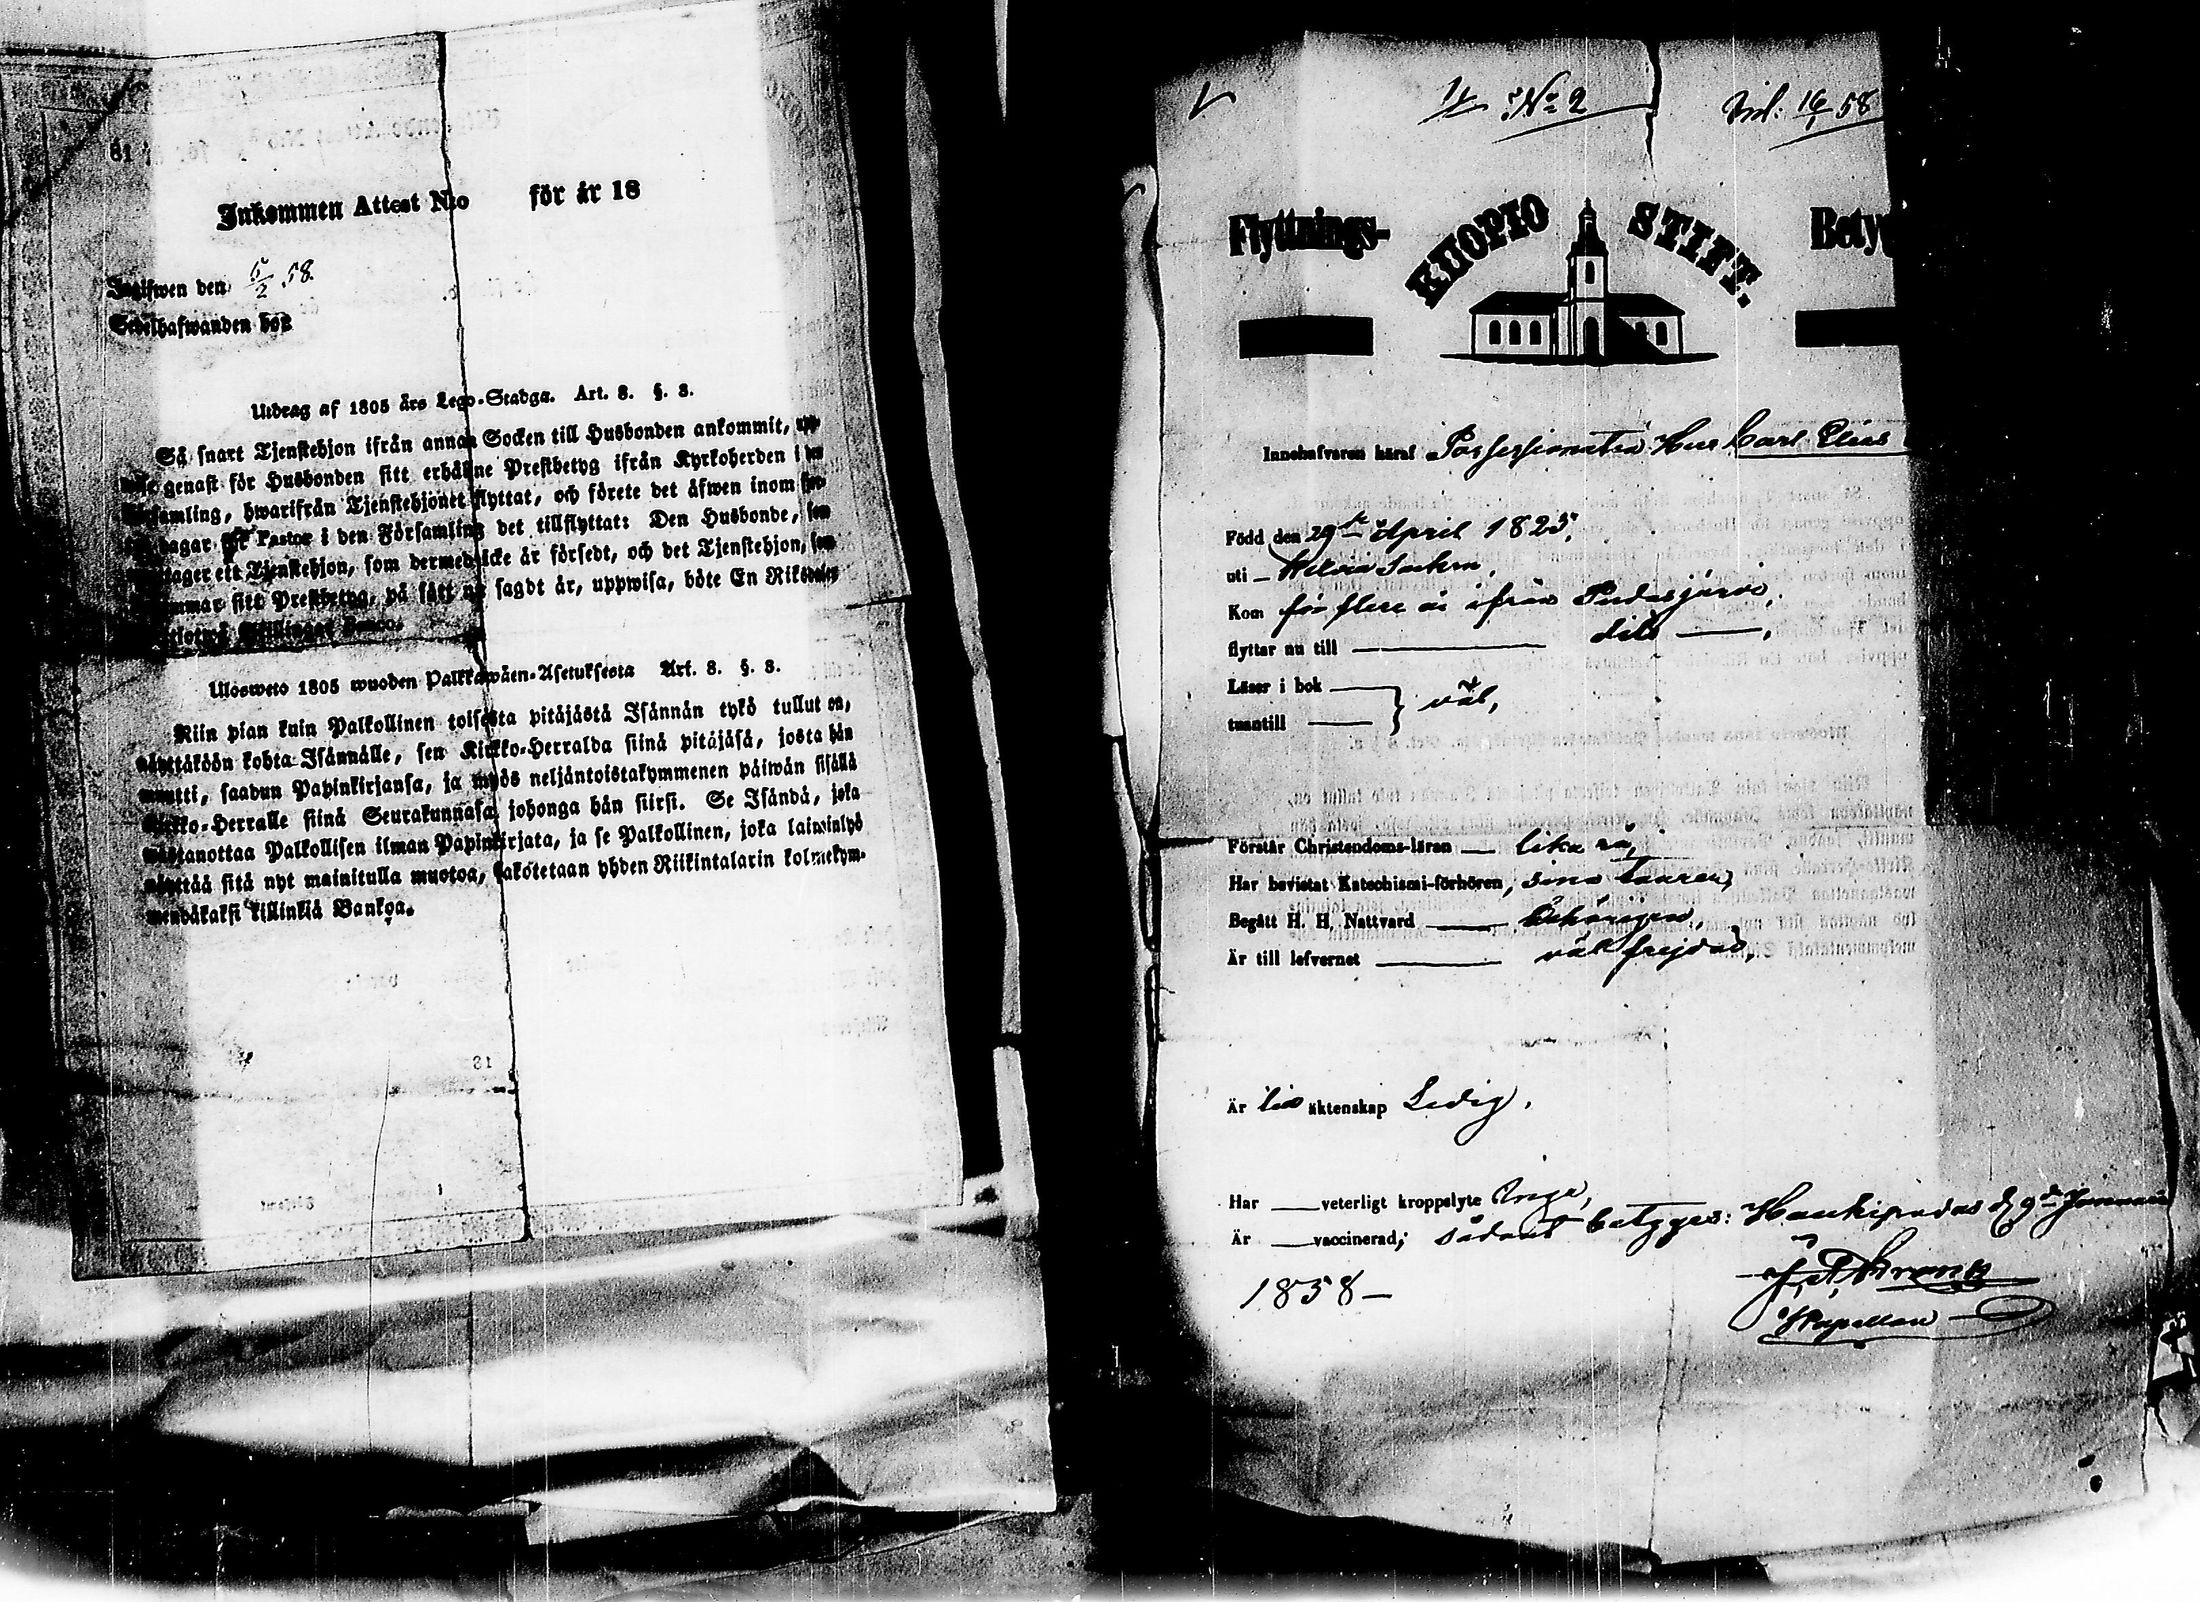 Inkommen Attest No för år 18
Ingifwen den 5/2 58.
Sedelhafwanden hos
Utdrag af 1805 års Lego-Stadga. Art. 8. §. 3.
Så snart Tjenstehjon ifrån annan Socken till Husbonden ankommit,
genast för Husbonden sitt erhållne Prestbetyg ifrån Kyrkoherden i
hwarifrån Tjenstehjonet flyttat, och förete det äfwen inom
dagar för Pastor i den Församling det tillflyttat: Den Husbonde, som
ett Tjenstehjon, som dermed icke är försedt, och det Tjenstehjon, som
sitt Prestbetyg, på sätt nu sagdt är, uppwisa, böte En Riksdaler
Skillingar Banco.
Ulosweto 1805 wuoden Palkkawäen-Asetuksesta Art. 8. §. 3.
Niin pian kuin Palkollinen toisesta pitäjästä Isännän tykö tullut on,
näyttäköön kohta Isännälle, sen Kirkko-Herralda siinä pitäjäsä, josta hän
muutti, saadun Papinkirjansa, ja myös neljäntoistakymmenen päiwän sisällä
Kirkko-Herralle siinä Seurakunnasa, johonga hän siirsi. Se Isändä, joka
wastanottaa Palkollisen ilman Papinkirjata, ja se Palkollinen, joka laiminlyö
näyttää sitä nyt mainitulla muotoa, sakotetaan yhden Riikintalarin kolmekym-
mendäkaksi killinkiä Bankoa.
No 2
58
Flyttnings- KUOPIO STIFT. Bety
Innehafvaren häraf Possessionaten Herr Carl Elias
Född den 29 April 1825,
uti Socken,
Kom för flere år ifrån Pudasjärvi,
flyttar nu till dito
Läser i bok
väl,
utantill
Förstår Christendoms-läran lika så,
Har bevistat Katechismi-förhören, sina
Begått H. H. Nattvard behörigen,
Är till lefvernet väl frejdad,
Är till äktenskap Ledig.
Har veterligt kroppslyte Inga,
Är vaccinerad, sådant betygges: Haukipudas d 9de Januari
1858
Kapellan